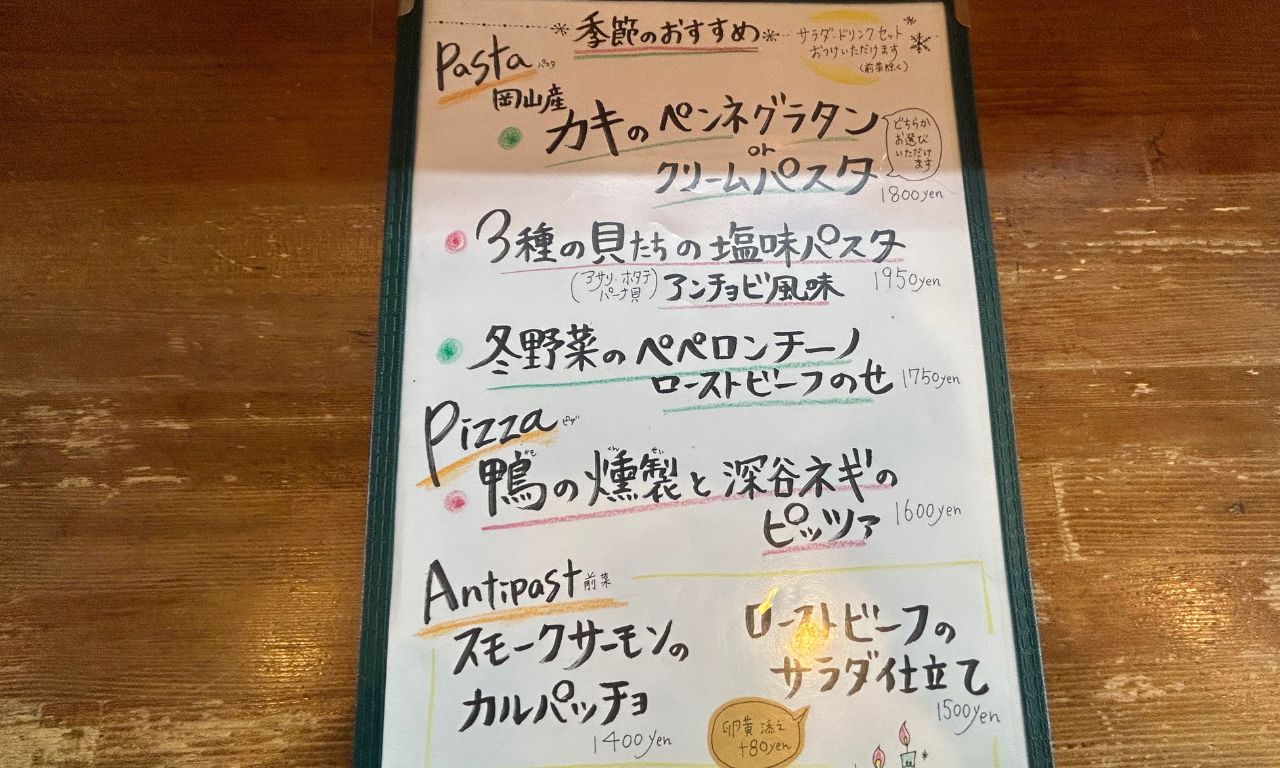 季節のおすすめ
サラダ・ドリンクセット
おつけいただけます
(前菜除く)
Pasta パスタ
岡山産
カキのペンネグラタン
or
クリームパスタ
どちらか
お選び
いただけ
ます
1800yen
3種の貝たちの塩味パスタ
(アサリ・ホタテ
パーナ貝)
アンチョビ風味
1950yen
冬野菜のペペロンチーノ
ローストビーフのせ 1750yen
Pizza ピザ
鴨の燻製と深谷ネギの
かも くんせい
ピッツァ 1600yen
Antipast 前菜
スモークサーモンの
カルパッチョ
1400yen
ローストビーフの
サラダ仕立て
1500yen
卵黄添え
+80yen